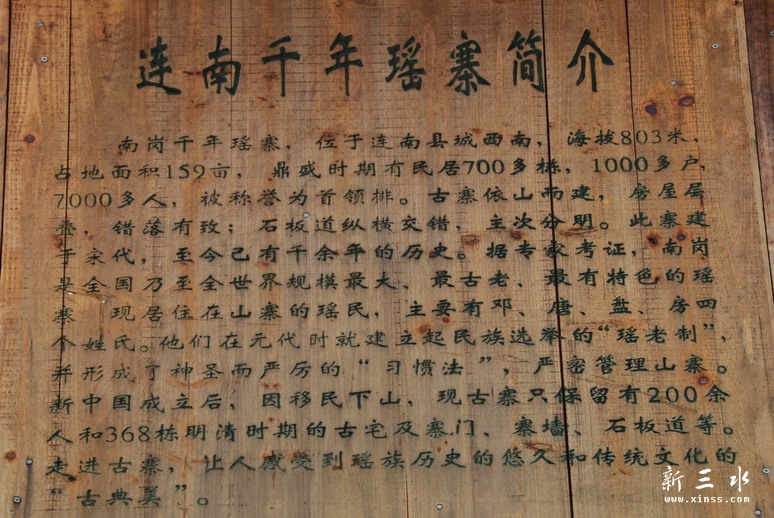 连南千年瑶寨简介
南岗千年瑶寨，位于连南县城西南，海拔803米，
占地面积159亩，鼎盛时期有民居700多栋，1000多户，
7000多人，被称誉为首领排。古寨依山而建，房屋层
叠，错落有致；石板道纵横交错，主次分明。此寨建
于宋代，至今已有千余年的历史。据专家考证，南岗
是全国乃至全世界规模最大、最古老、最有特色的瑶
寨　现居住在山寨的瑶民，主要有邓、唐、盘、房四
个姓氏。他们在元代时就建立起民族选举的“瑶老制”，
并形成了神圣而严厉的“习惯法”，严密管理山寨。
新中国成立后，因移民下山，现古寨只保留有200余
人和368栋明清时期的古宅及寨门、寨墙、石板道等。
走进古寨，让人感受到瑶族历史的悠久和传统文化的
“古典美”。
新三水
www.xinss.com